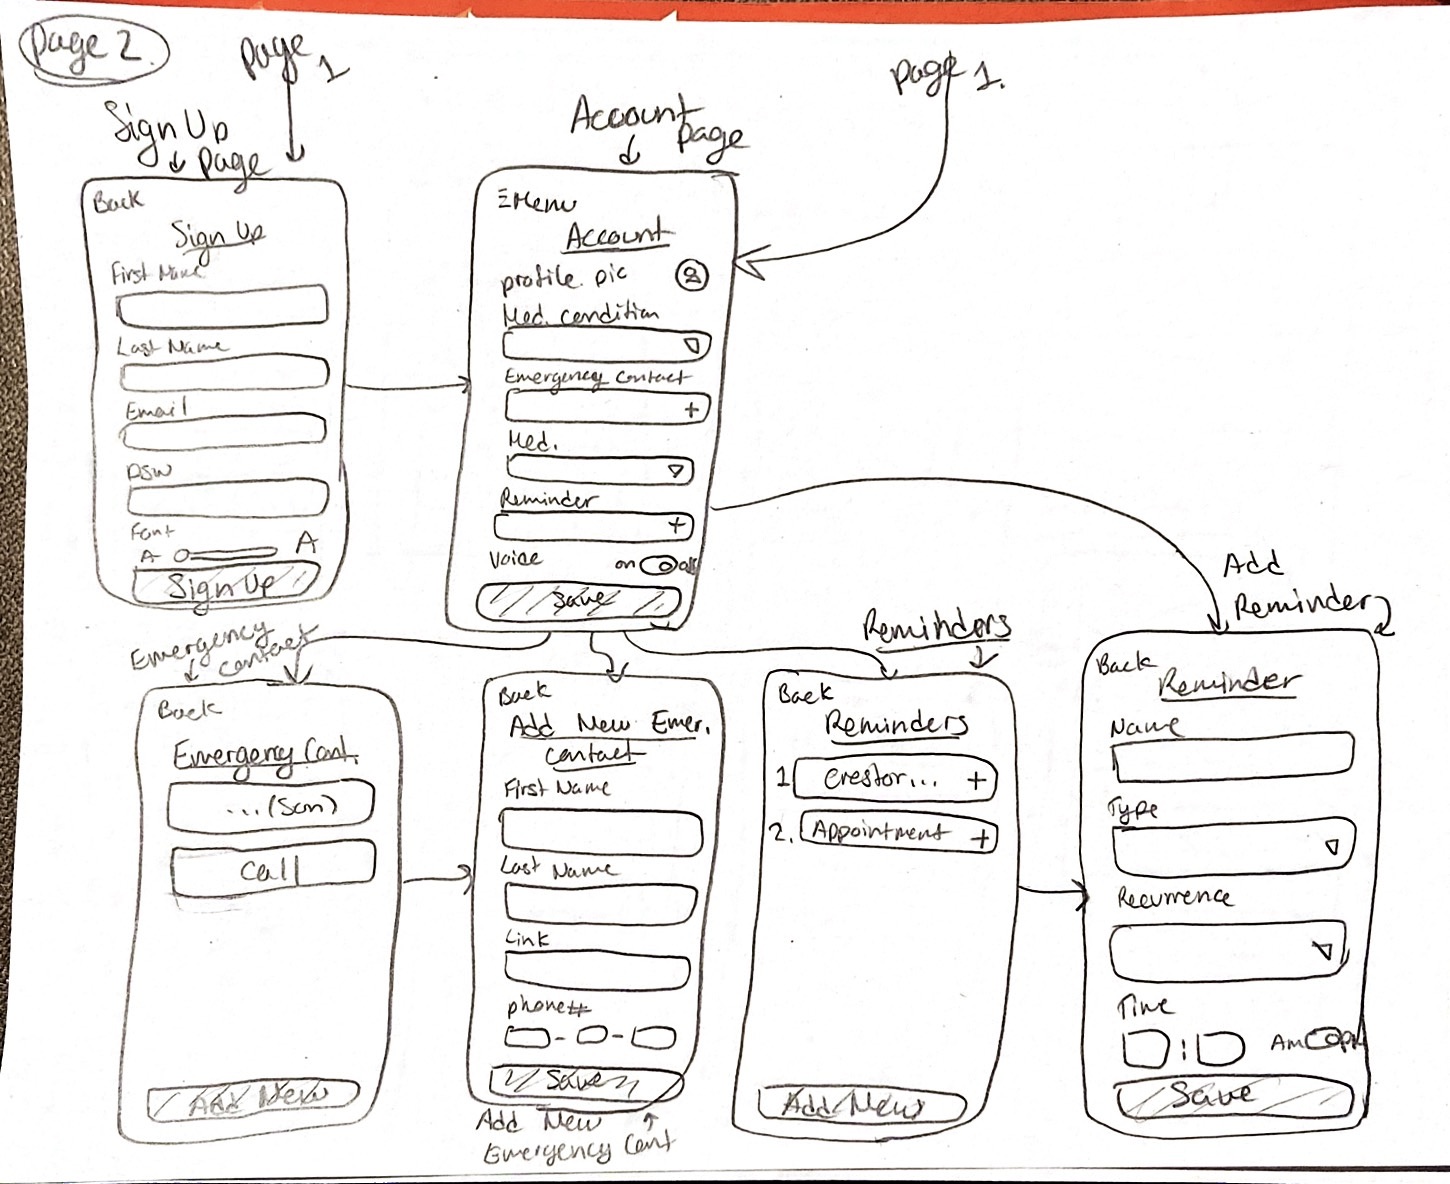 Page 2.
page 1
page 1.
Sign Up
page
Back
Sign Up
First Name
Last Name
Email
psw
Font
A A
Sign Up
Account
page
Menu
Account
profile pic
Med. condition
Emergency Contact
+
Med.
Reminder
+
Voice on off
Save
Emergency
contact
Back
Emergency Cont.
...(Son)
Call
Add New
Back
Add New Emer.
contact
First Name
Last Name
Link
phone#
- -
Save
Add New
Emergency Cont
Reminders
Back
Reminders
1 Crestor... +
2. Appointment +
Add New
Add
Reminder
Back
Reminder
Name
Type
Recurrence
Time
: Am PM
Save